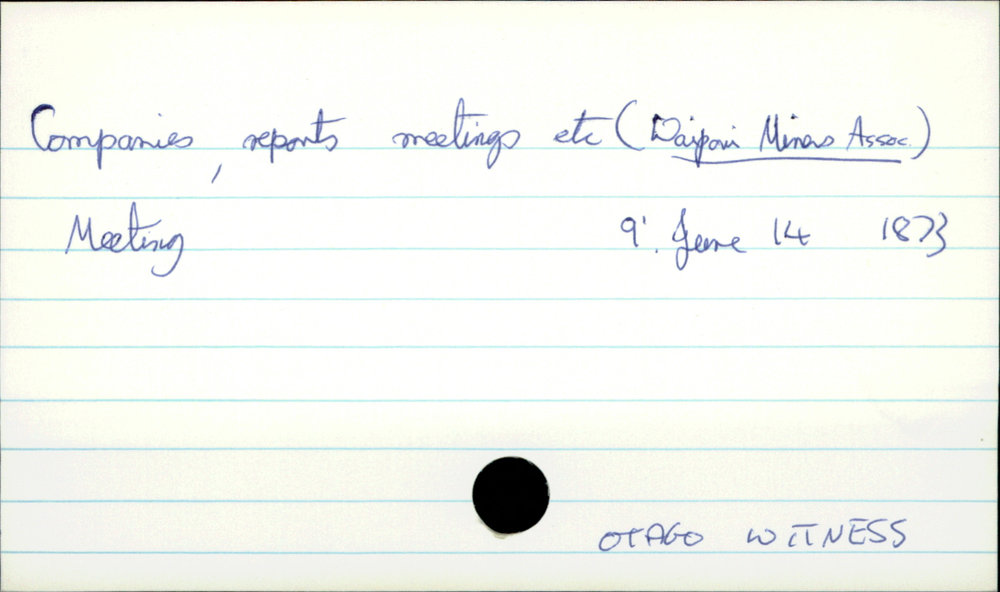 Companies, reports meetings etc (Waipori Miners Assoc.)
Meeting 9'. June 14 1873
OTAGO WITNESS